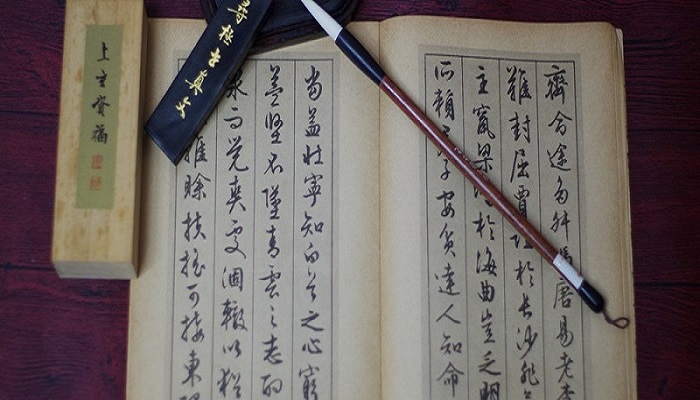 齊命途多舛馮唐易老李
難封屈賈誼於長沙非
主竄梁鴻於海曲豈乏明
所賴君子安貧達人知命
當益壯寧知白首之心窮
益堅不墜青雲之志酌
泉而覺爽處涸轍以猶
雖賒扶搖可接東隅
真文
上福